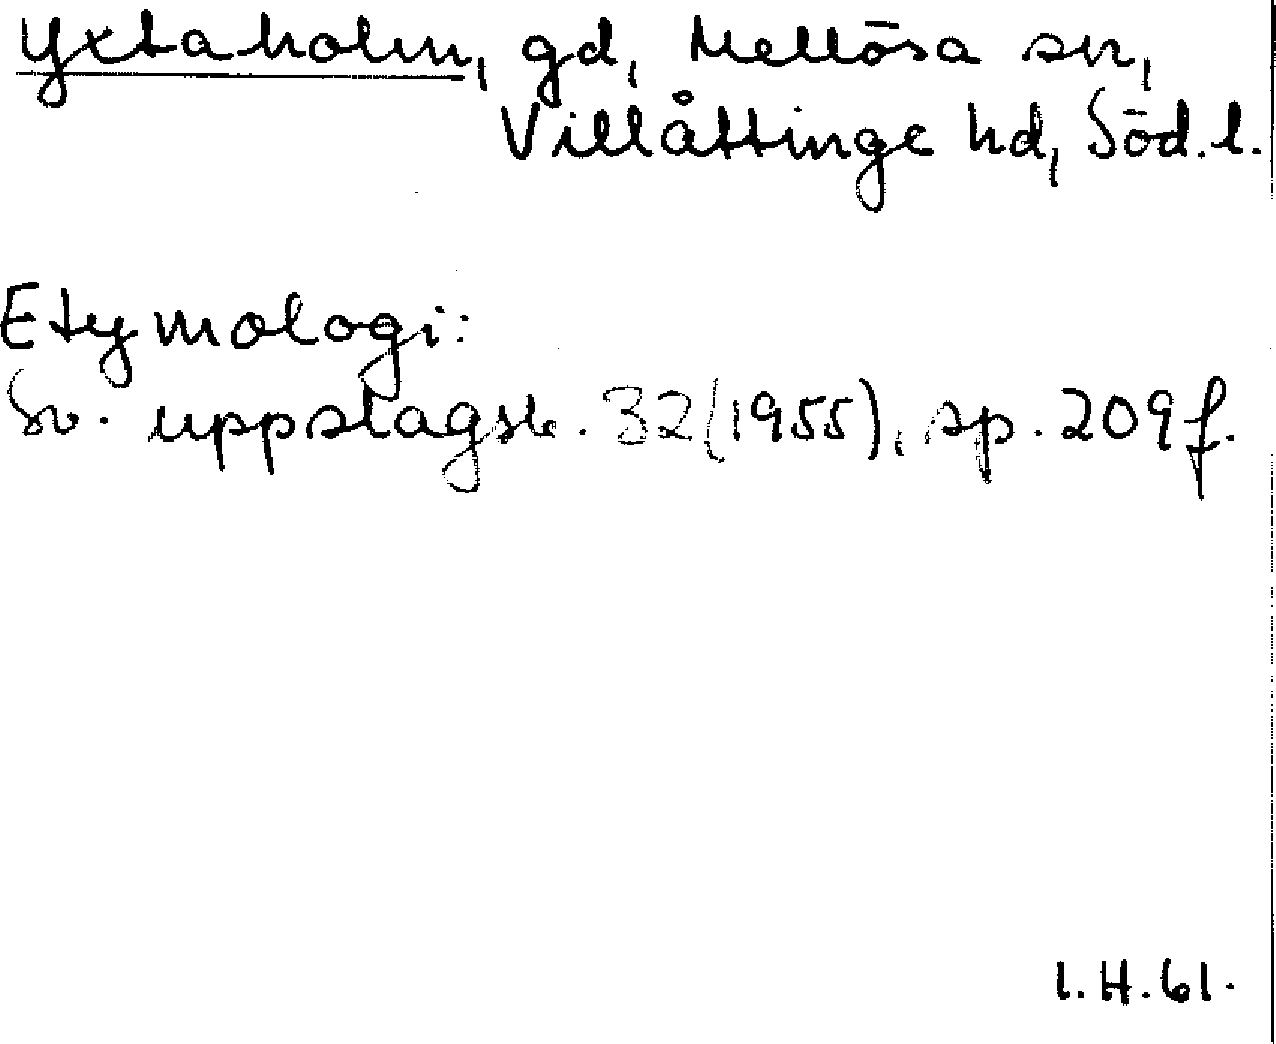 Yxtaholm, gd, Mellösa sn,
Villåttinge hd, Söd. l.
Etymologi:
Sv. uppslagsb. 32 (1955), sp. 209 f.
I. H. 61.